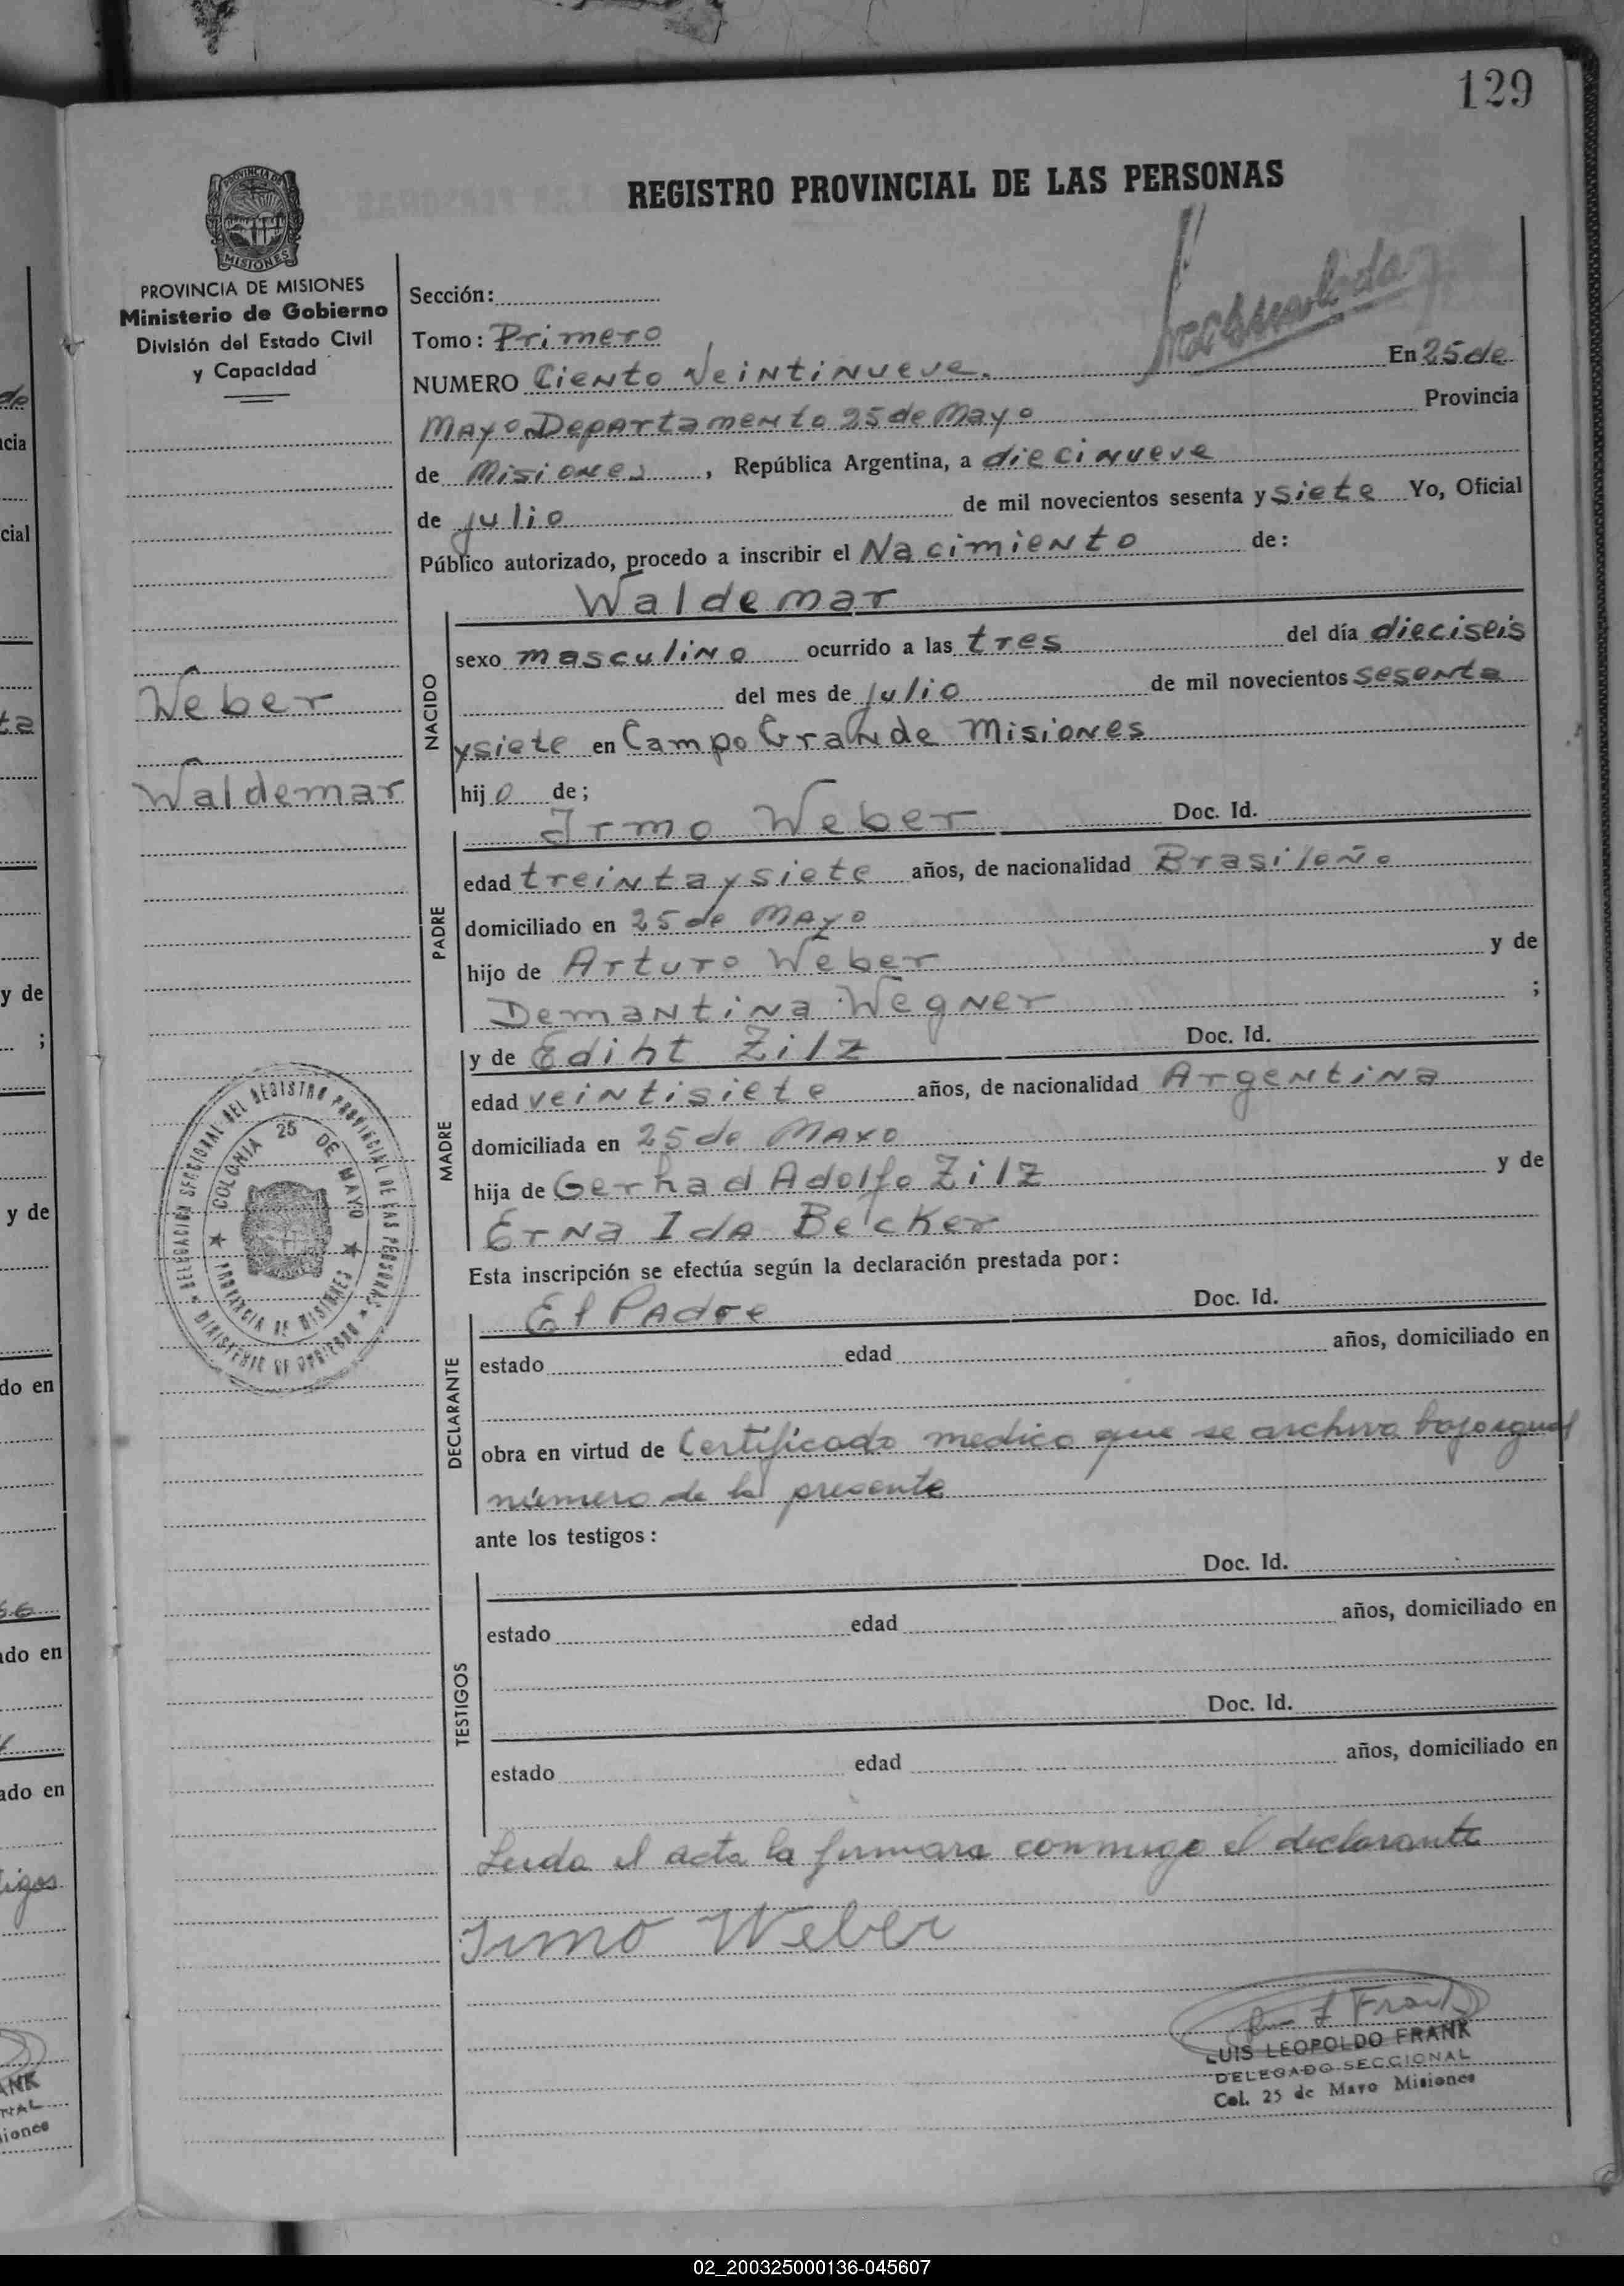 129
REGISTRO PROVINCIAL DE LAS PERSONAS
PROVINCIA DE MISIONES
MISIONES
PROVINCIA DE MISIONES
Ministerio de Gobierno
División del Estado Civil
y Capacidad
Sección:
Tomo: Primero
NUMERO Ciento Veintinueve. En 25 de
Mayo Departamento 25 de Mayo Provincia
de Misiones, República Argentina, a diecinueve
de julio de mil novecientos sesenta y siete Yo, Oficial
Público autorizado, procedo a inscribir el Nacimiento de:
Waldemar
NACIDO
sexo masculino ocurrido a las tres del día dieciseis
del mes de julio de mil novecientos sesenta
y siete en Campo Grande Misiones
Weber
Waldemar
hij o de;
Irmo Weber Doc. Id.
PADRE
edad treinta y siete años, de nacionalidad Brasileño
domiciliado en 25 de Mayo
hijo de Arturo Weber y de
Demantina Wegner ;
MADRE
y de Ediht Zilz Doc. Id.
edad veintisiete años, de nacionalidad Argentina
domiciliada en 25 de Mayo
hija de Gerhad Adolfo Zilz y de
Erna Ida Becker
DELEGACION SECCIONAL DEL REGISTRO PROVINCIAL DE LAS PERSONAS
MINISTERIO DE GOBIERNO
COLONIA 25 DE MAYO
PROVINCIA DE MISIONES
Esta inscripción se efectúa según la declaración prestada por:
El Padre Doc. Id.
DECLARANTE
estado edad años, domiciliado en
obra en virtud de Certificado medico que se archiva bajo igual
número de la presente
ante los testigos:
Doc. Id.
TESTIGOS
estado edad años, domiciliado en
Doc. Id.
estado edad años, domiciliado en
Leida el acta la firmara conmigo el declarante
Irmo Weber
LUIS LEOPOLDO FRANK
DELEGADO SECCIONAL
Col. 25 de Mayo Misiones
02_200325000136-045607